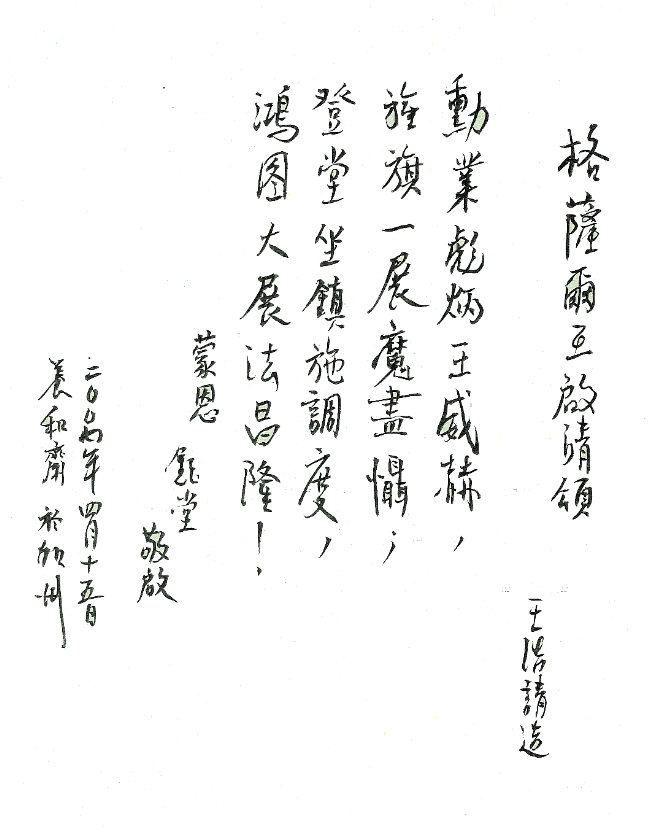 格薩爾王啟請頌
王浩請造
勳業彪炳王威赫，
旌旗一展魔盡懾；
登堂坐鎮施調度，
鴻图大展法昌隆！
蒙恩
鈺堂
敬啟
二〇〇四年四月十五日
養和齋 於加州